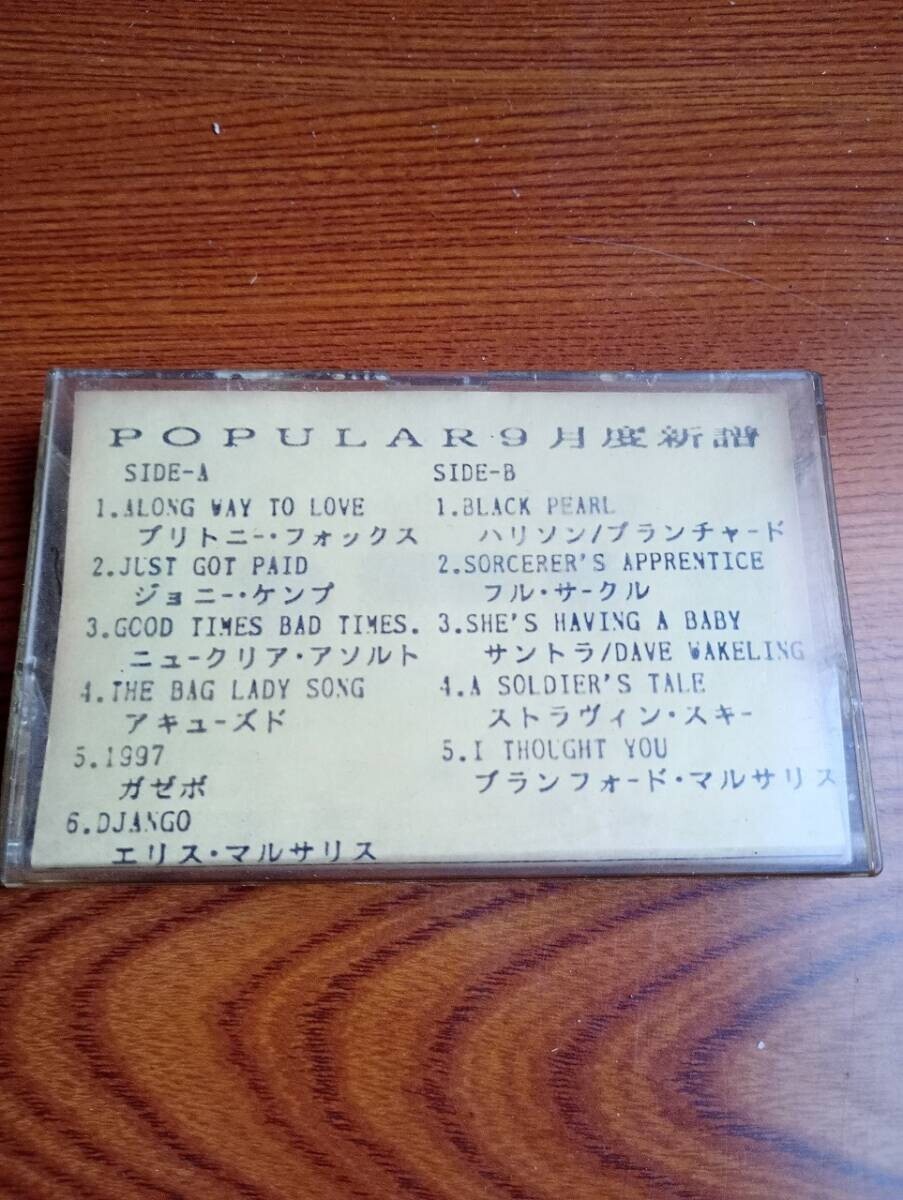 POPULAR 9月度新譜
SIDE-A
1.ALONG WAY TO LOVE
ブリトニー・フォックス
2.JUST GOT PAID
ジョニー・ケンプ
3.GOOD TIMES BAD TIMES.
ニュークリア・アソルト
4.THE BAG LADY SONG
アキューズド
5.1997
ガゼボ
6.DJANGO
エリス・マルサリス
SIDE-B
1.BLACK PEARL
ハリソン/ブランチャード
2.SORCERER'S APPRENTICE
フル・サークル
3.SHE'S HAVING A BABY
サントラ/DAVE WAKELING
4.A SOLDIER'S TALE
ストラヴィン・スキー
5.I THOUGHT YOU
ブランフォード・マルサリス